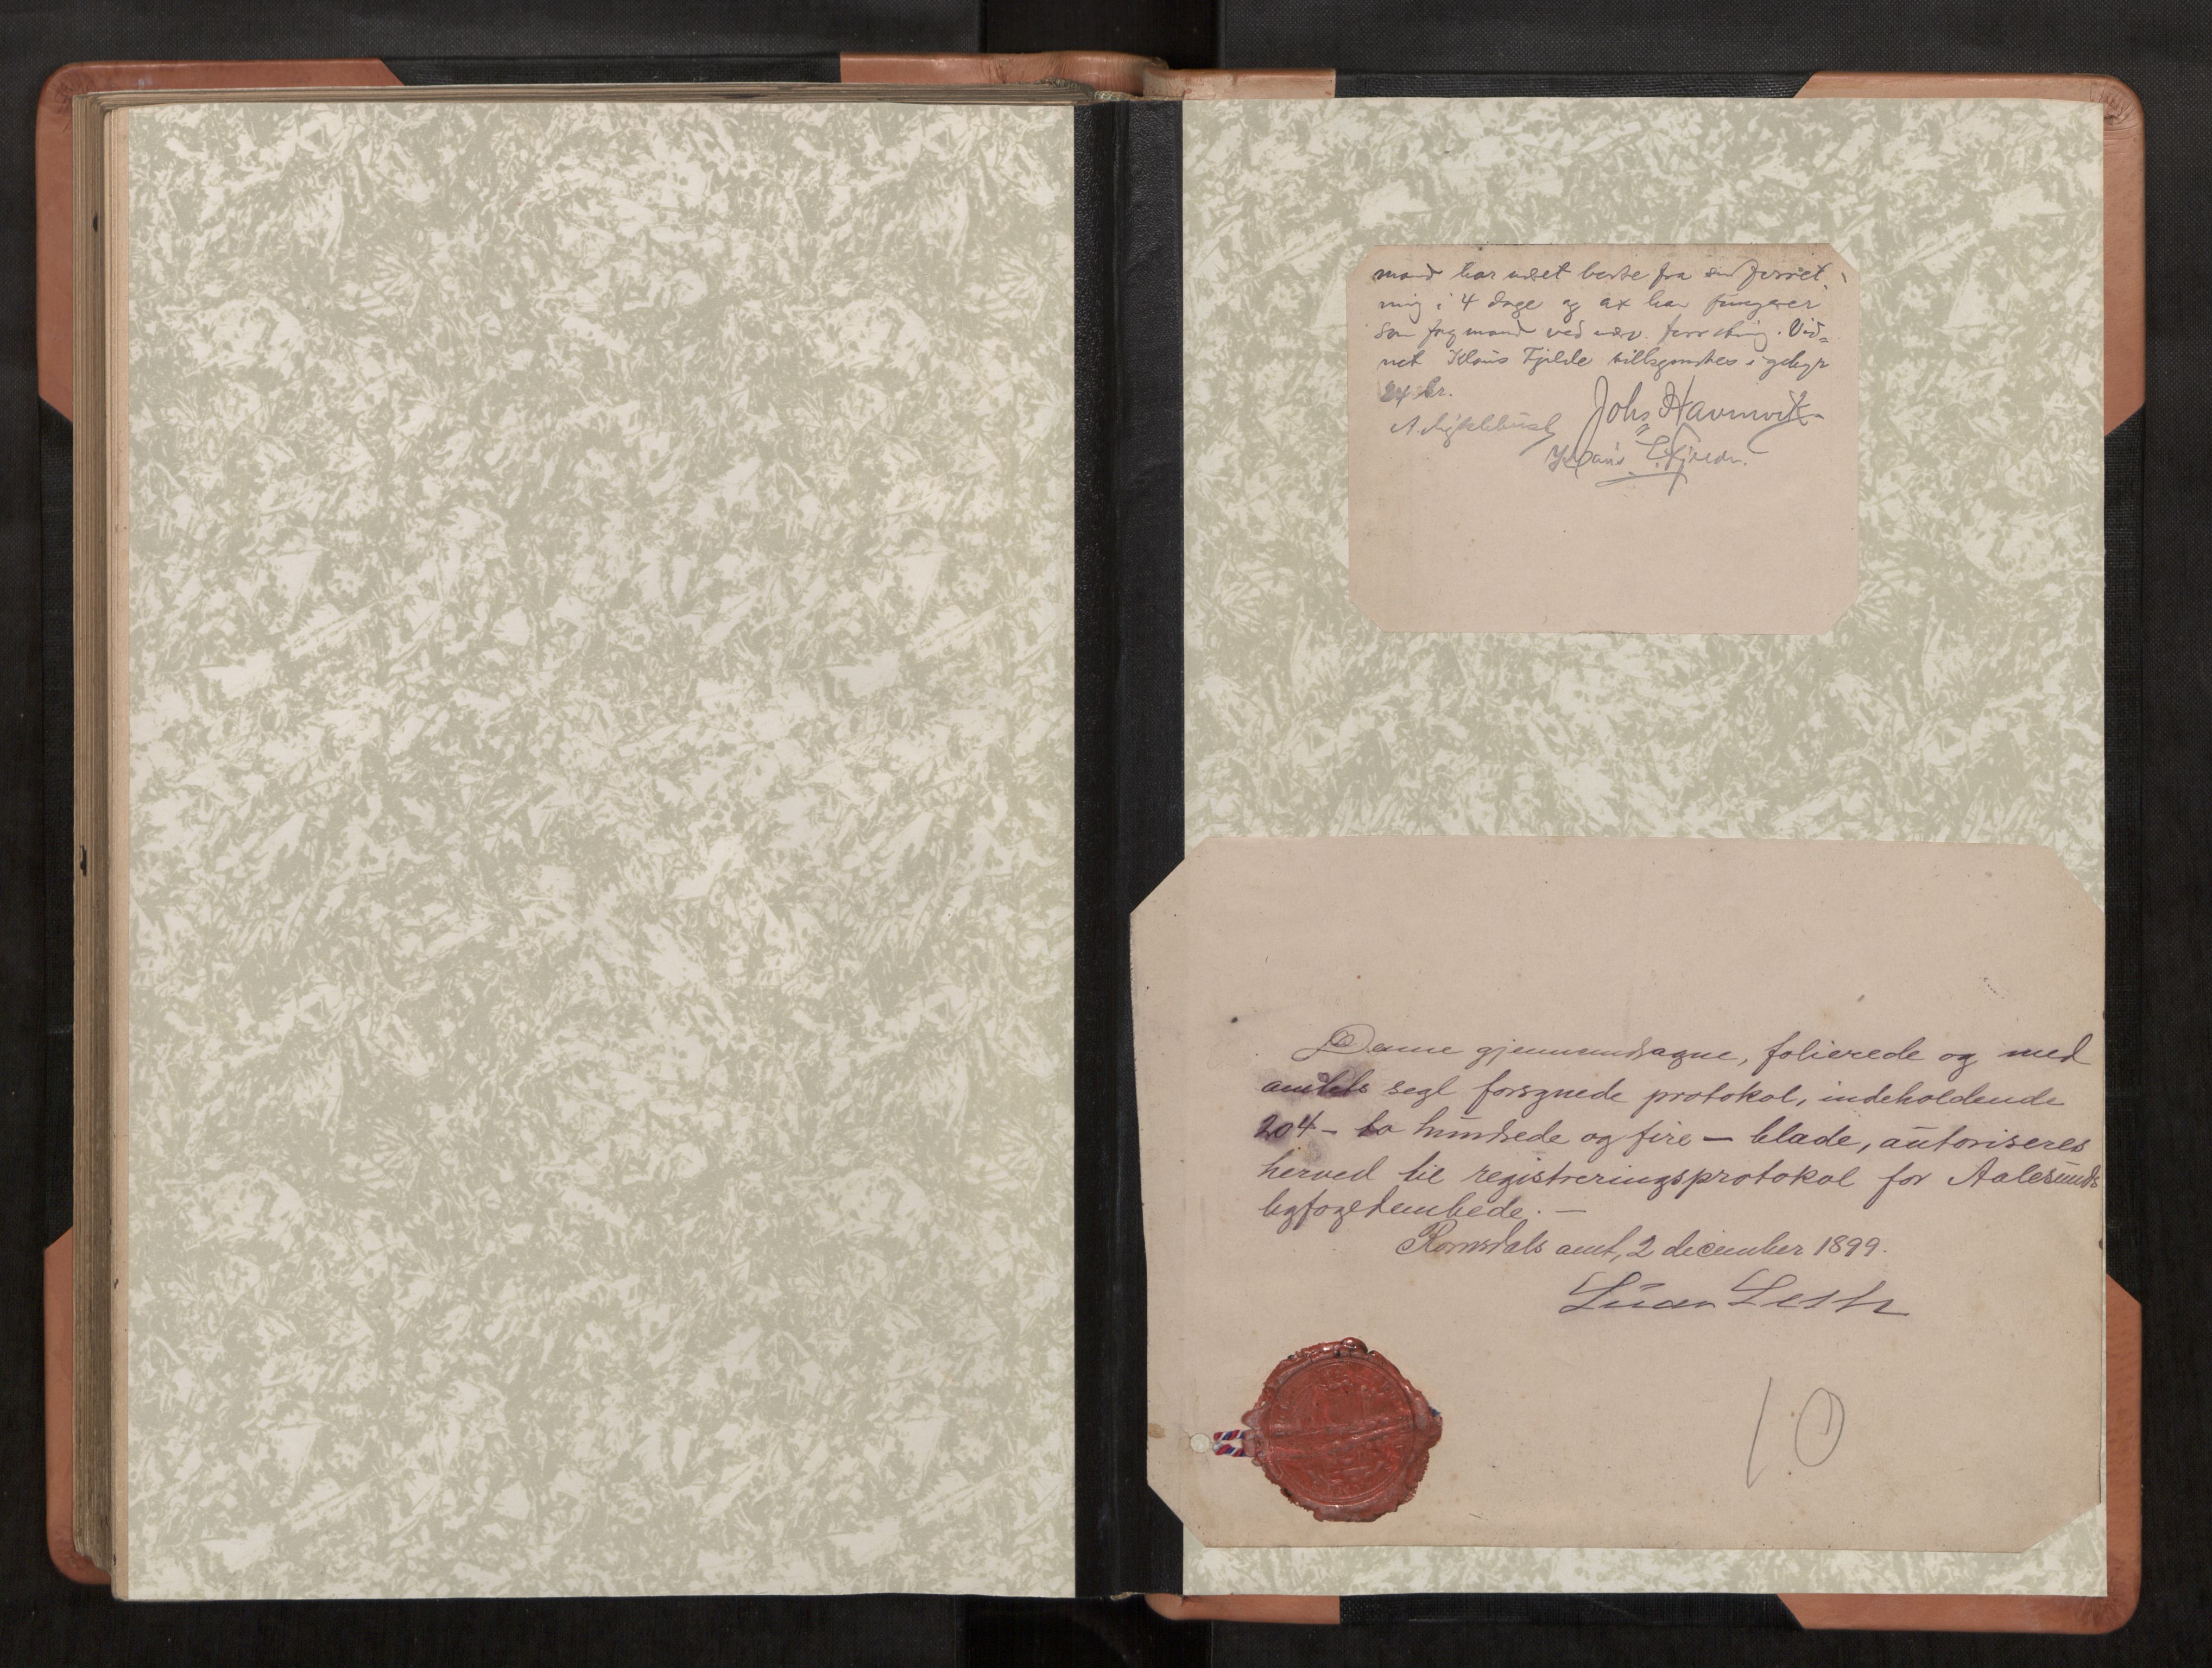 mand har været borte fra sin forret-
ning i 4 dage og at han fungerer
som fagmand ved nærv. forretning. Vid=
net Klaus Fjelde tillægges i gebyr
24 kr.
Johs Havnvik
Klaus
Denne gjennemdragne, folierede og med
amtets segl forsynede protokol, indeholdende
204 - to hundrede og fire - blade, autoriseres
herved til registreringsprotokol for Aalesunds
byfogedembede. -
Romsdals amt, 2 december 1899.
10